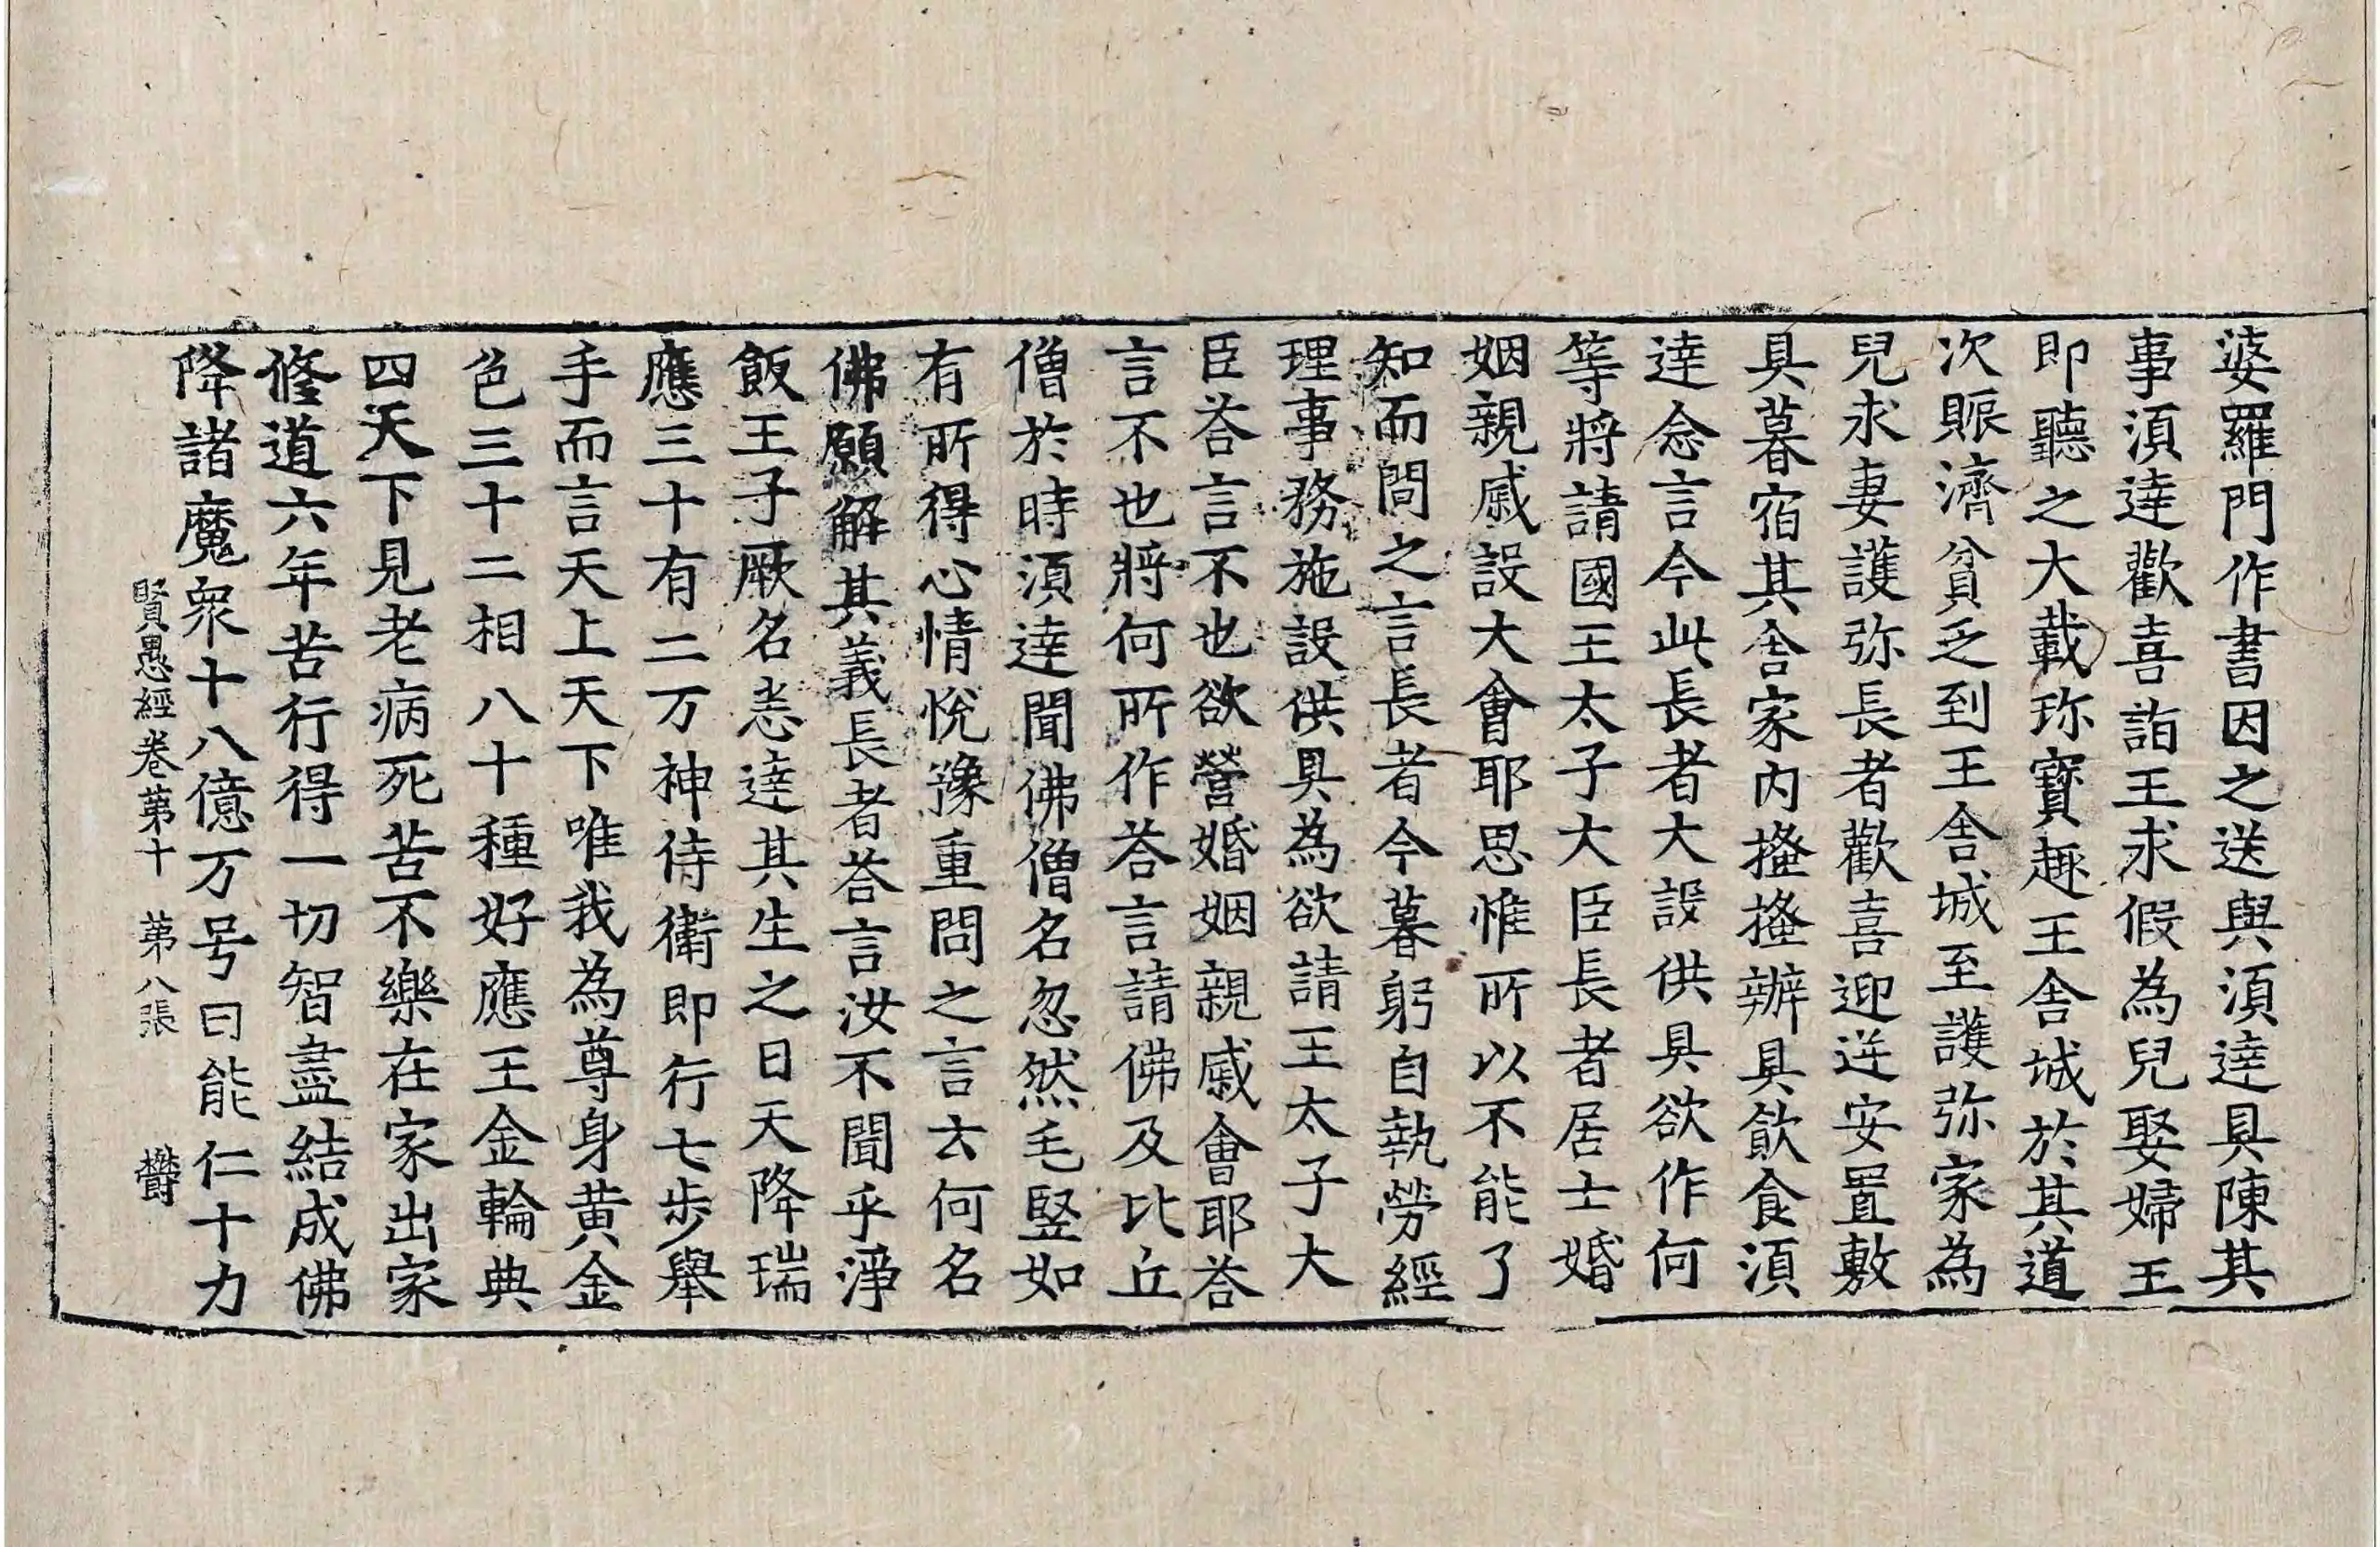 婆羅門作書因之送與湏達具陳其
事湏達歡喜詣王求假為兒娶婦王
即聽之大載珎寶趣王舎城於其道
次賑濟貧乏到王舎城至護弥家為
兒求妻護弥長者歡喜迎逆安置敷
具暮宿其舎家內搔搔辦具飲食湏
達念言今此長者大設供具欲作何
等將請國王太子大臣長者居士婚
姻親戚設大會耶思惟所以不能了
知而問之言長者今暮躬自執勞經
理事務施設供具為欲請王太子大
臣荅言不也欲營婚姻親戚會耶荅
言不也將何所作荅言請佛及比丘
僧於時湏達聞佛僧名忽然毛竪如
有所得心情恱豫重問之言云何名
佛願解其義長者荅言汝不聞乎淨
飯王子厥名悉達其生之日天降瑞
應三十有二万神侍衛即行七步舉
手而言天上天下唯我為尊身黃金
色三十二相八十種好應王金輪典
四天下見老病死苦不樂在家出家
修道六年苦行得一切智盡結成佛
降諸魔衆十八億万号曰能仁十力
賢愚經卷第十 第八張 欝